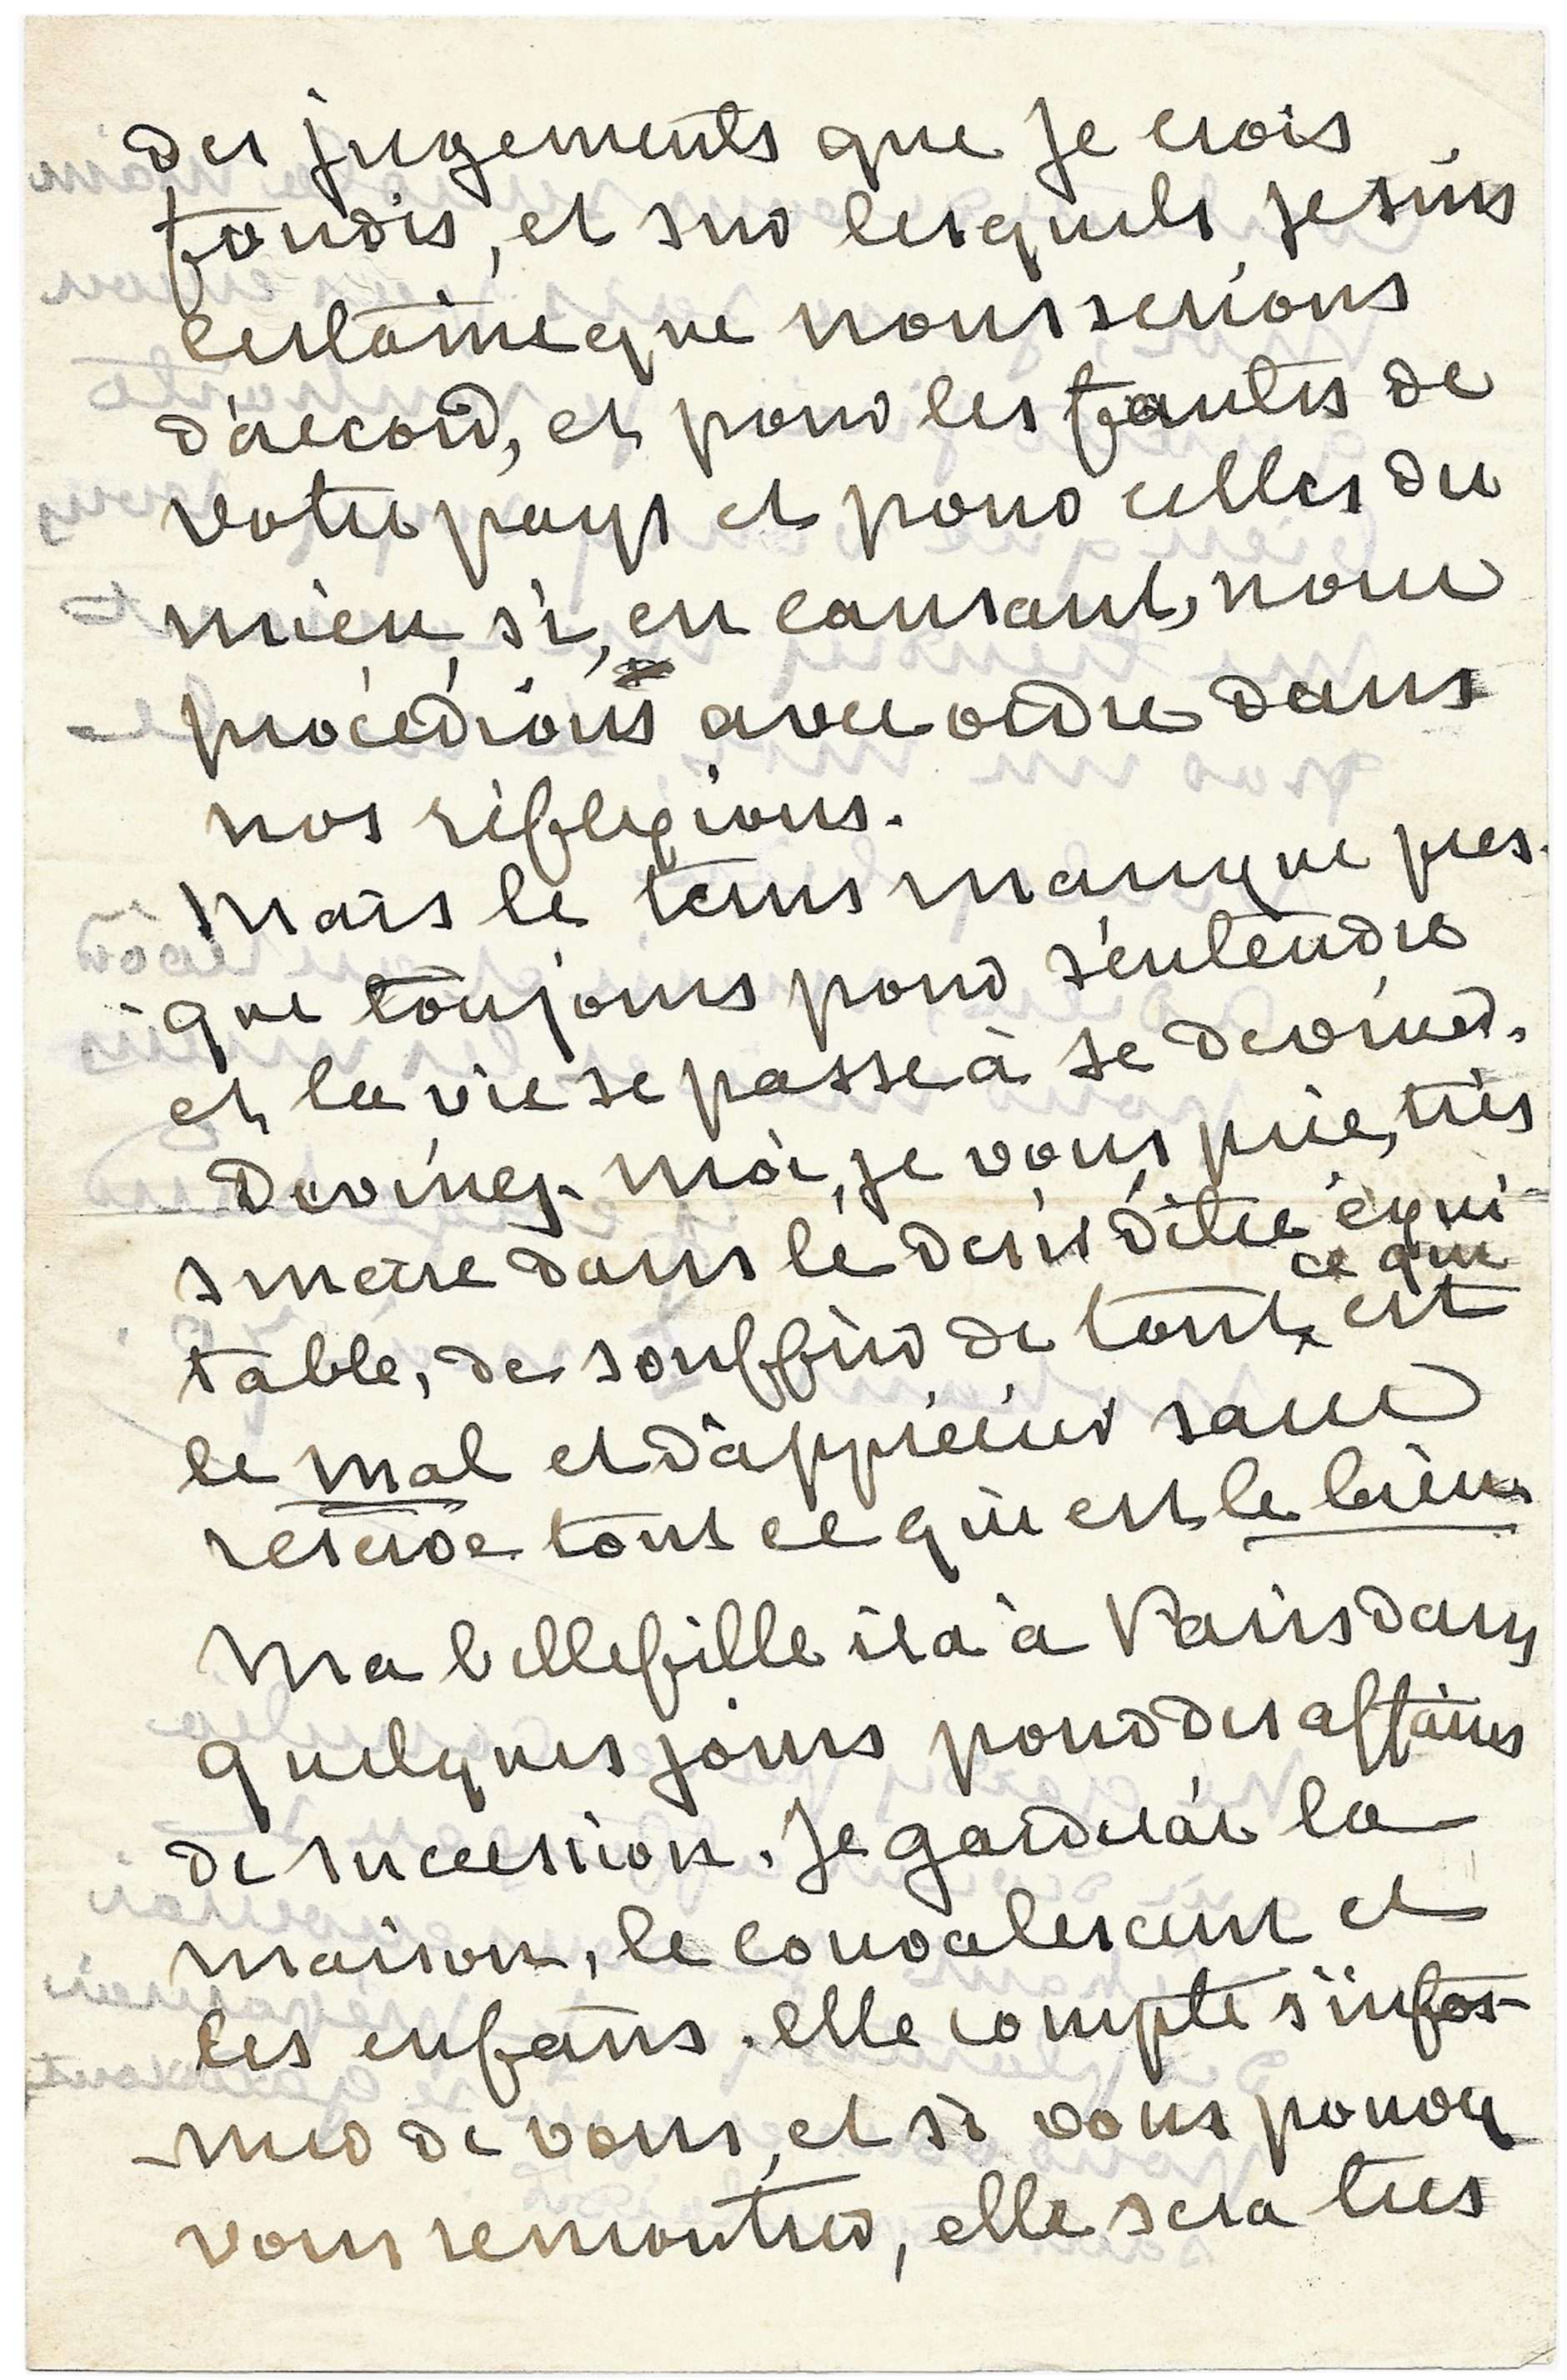 des jugements que je crois
fondés, et sur lesquels je suis
certaine que nous serions
d'accord, et pour les fautes de
votre pays et pour celles du
mien, si, en causant, nous
procédions avec ordre dans
nos réflexions.
Mais le tems manque pres-
que toujours pour s'entendre
et la vie se passe à se deviner.
Devinez-moi, je vous prie, très
sincère dans le désir d'être équi-
table, de souffrir de tout ce que est
le mal et d'apprécier sans
réserve tout ce qui est le bien.
Ma bellefille ira à Paris dans
quelques jours pour des affaires
de succession. Je garderai la
maison, le convalescent et
les enfans. elle compte s'infor-
mer de vous, et si vous pouvez
vous remontrer, elle sera très